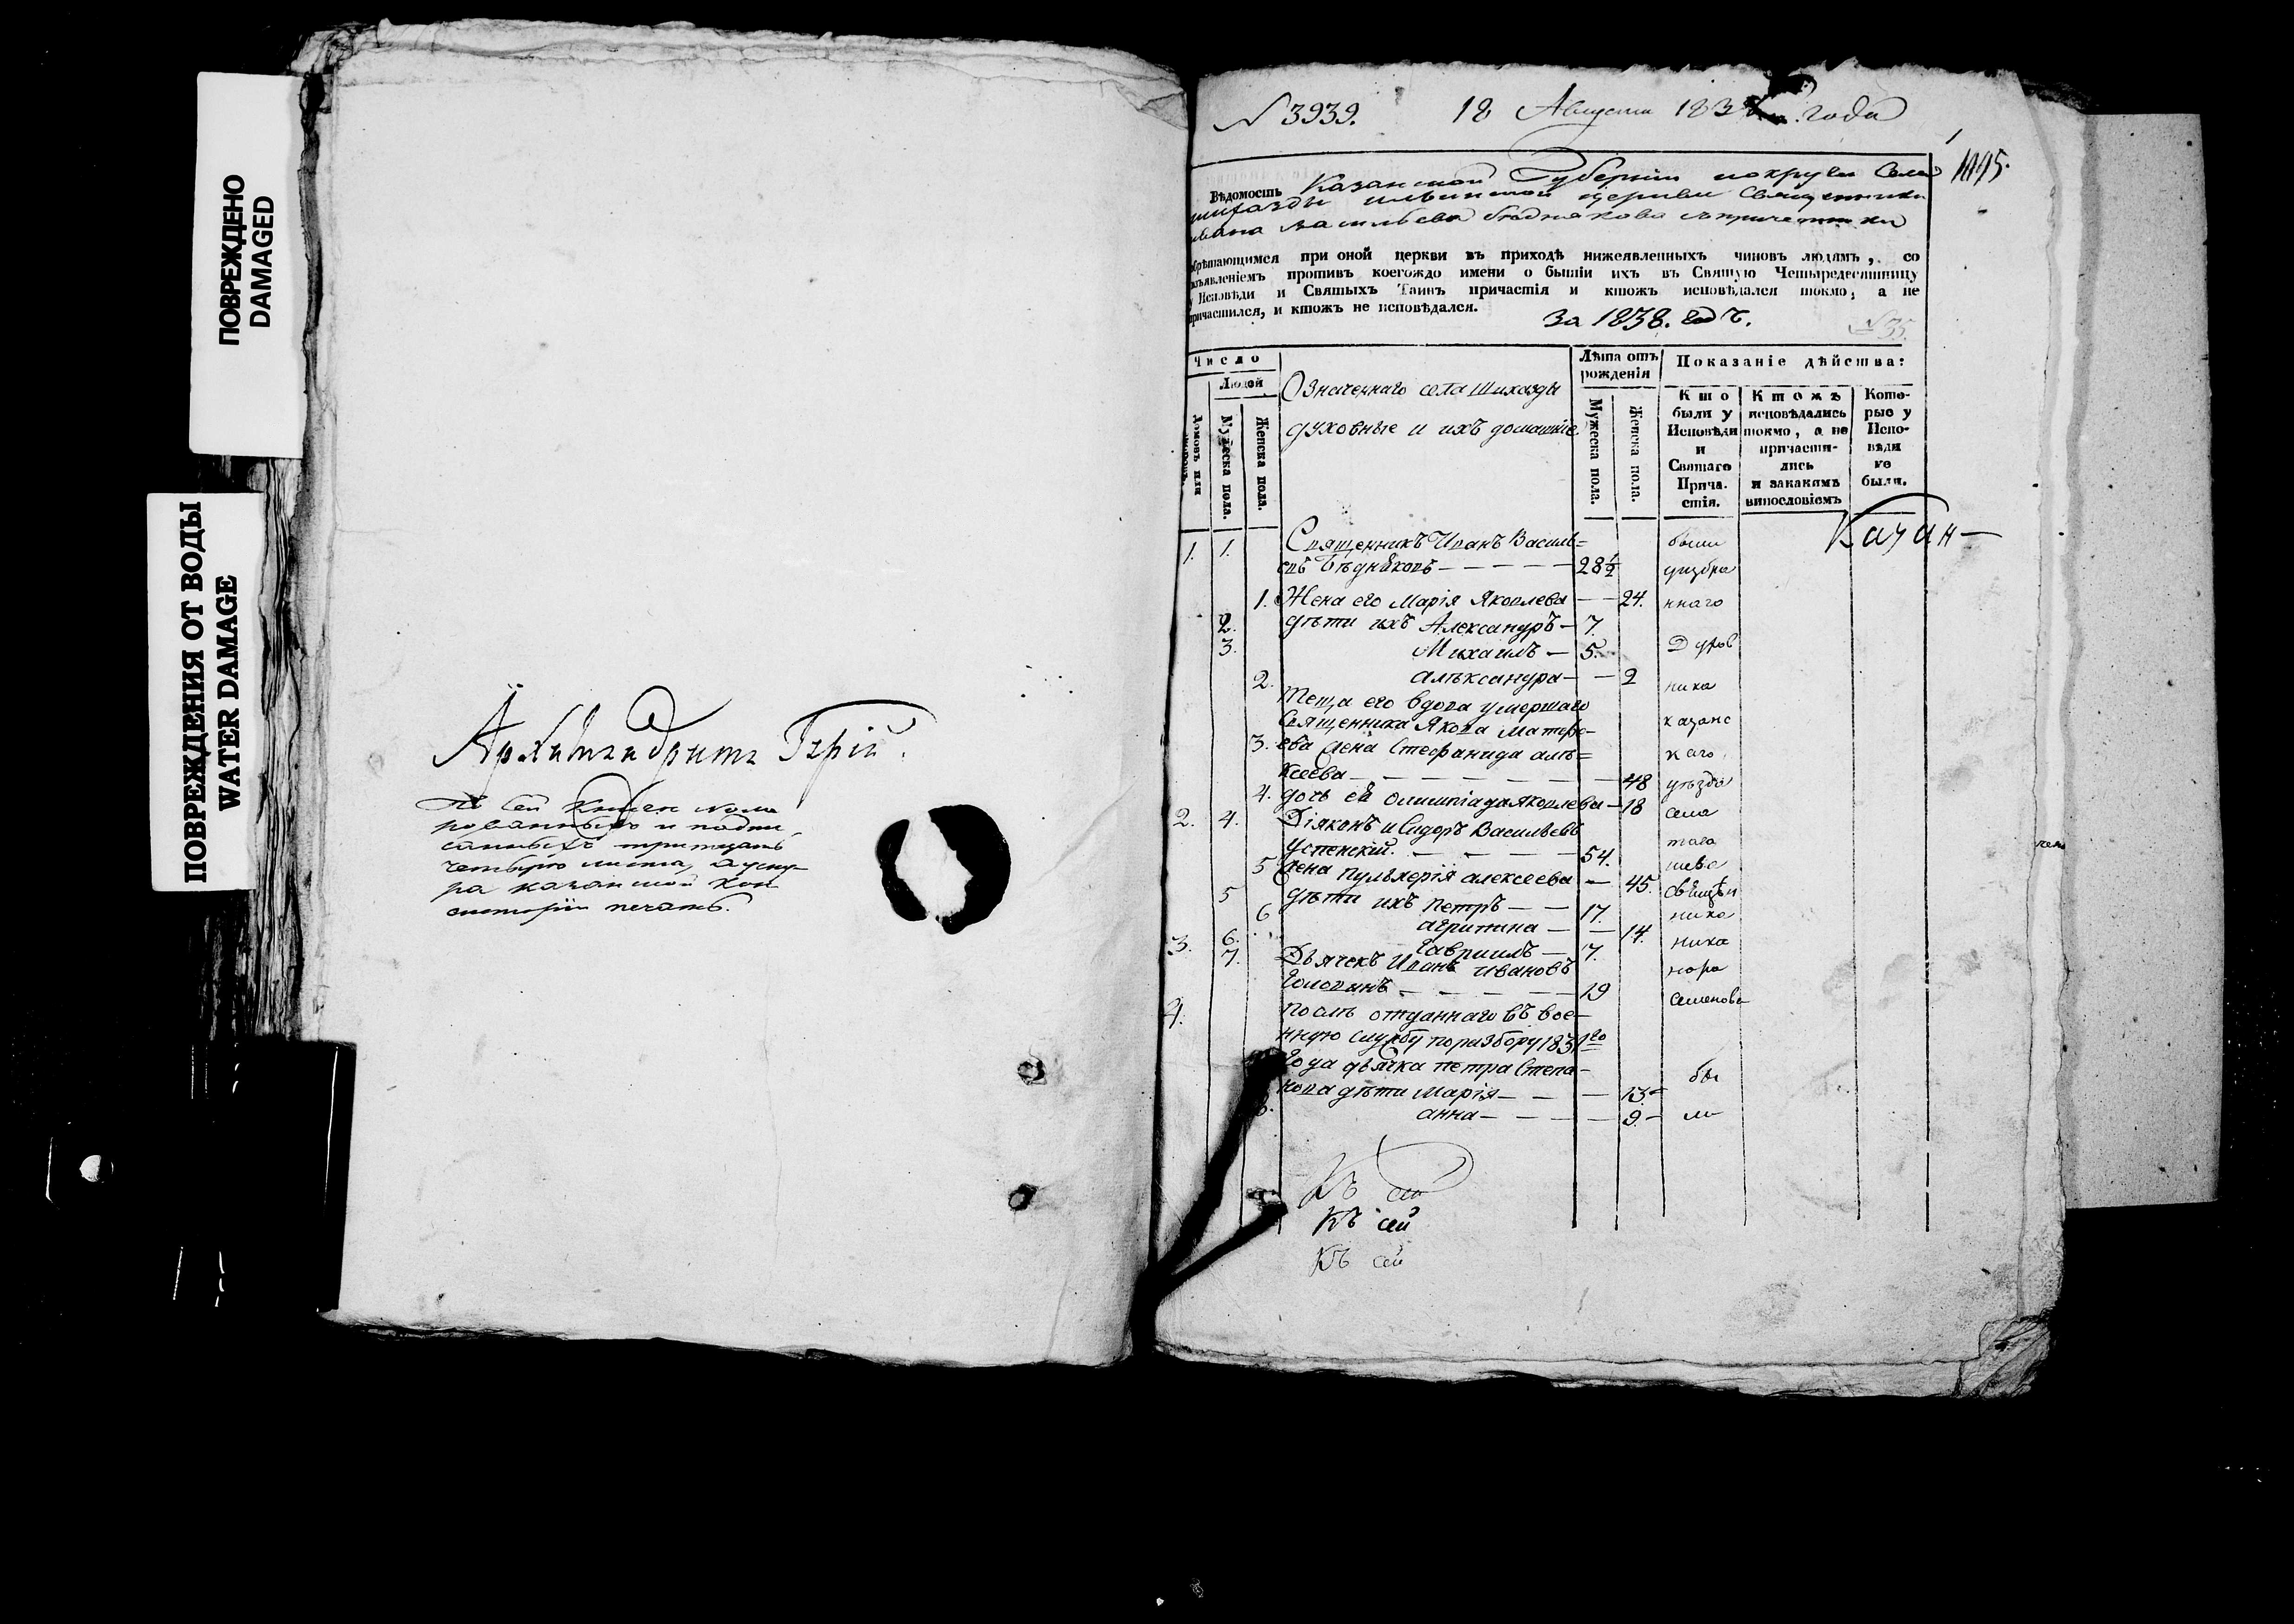 ПОВРЕЖДЕНО
DAMAGED
ПОВРЕЖДЕНИЯ ОТ ВОДЫ
WATER DAMAGE
Архимандритъ
сей
рованныхъ и подпи
санныхъ тритцать
четыре листа, а
ра казанской кон
систоріи печать.
N 3939. 18 Августа 183 года
1
Вѣдомость Казанской Губерніи округи Села
церкви Священника
ивана васильева бѣднякова съпричетники
при оной церкви въ приходѣ нижеявленныхъ чиновъ людямъ, со
изъявленіемъ противъ коегождо имени о бытіи ихъ въ Святую Четыредесятницу
у Исповѣди и Святыхъ Таинъ причастія и ктожъ исповѣдался токмо, а не
причастился, и ктожъ не исповѣдался.
За 1838. годъ.
N 35
Число
Людей
Домовъ или
Мужеска пола.
Женска пола.
Означеннаго села Шихазды
духовные и ихъ домашніе
Лѣта отъ рожденія
Мужеска пола.
Женска пола.
Показаніе дѣйства:
Кто были у Исповѣди и Святаго Прича- стія.
Ктожъ исповѣдались токмо, а не причасти- лись и закакимъ винословіемъ
Кото- рые у Испо- вѣди не были.
1. 1. Священникъ Иванъ Василь= были
евъ Бѣдняковъ — 28½
1. Жена его Марія Яковлева — 24. ннаго
2. дѣти ихъ Александръ — 7.
3. Михаилъ — 5. Духов
2. алѣксандра — 2
ника
Теща его вдова умершаго
Священника Якова Матфе- казанс
3. ева жена Стефанида алѣ= каго
ксѣева — 48 уѣзда
4. дочь ея олимпіада Яковлева — 18 села
2. 4. Діяконъ исидоръ Васильевъ
Успенскій. — 54.
5 жена пульхерія алексеева — 45. свѣщен
5 дѣти ихъ петръ — 17. ника
6 агрипина — 14. ника
6. Гавриилъ — 7.
3. 7. Дьячекъ Иванъ ивановъ нора
— 19 семенова
4. послѣ отданнаго въ вое-
нную службу поразбору 1831го
года дьячка петра Степа-
нова дѣти Марія — 13 — бы
анна — 9. — ли
Казан—
Къ сей
Къ сей
Къ сей